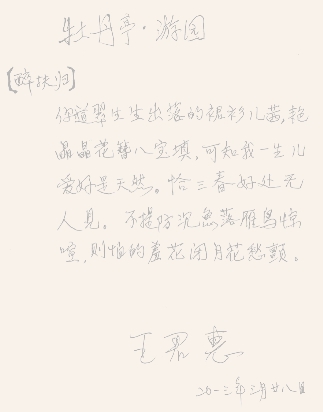 牡丹亭·游园
【醉扶归】
你道翠生生出落的裙衫儿茜,艳
晶晶花簪八宝填,可知我一生儿
爱好是天然。恰三春好处无
人见。不提防沉鱼落雁鸟惊
喧,则怕的羞花闭月花愁颤。
王君惠
二〇一三年三月廿八日